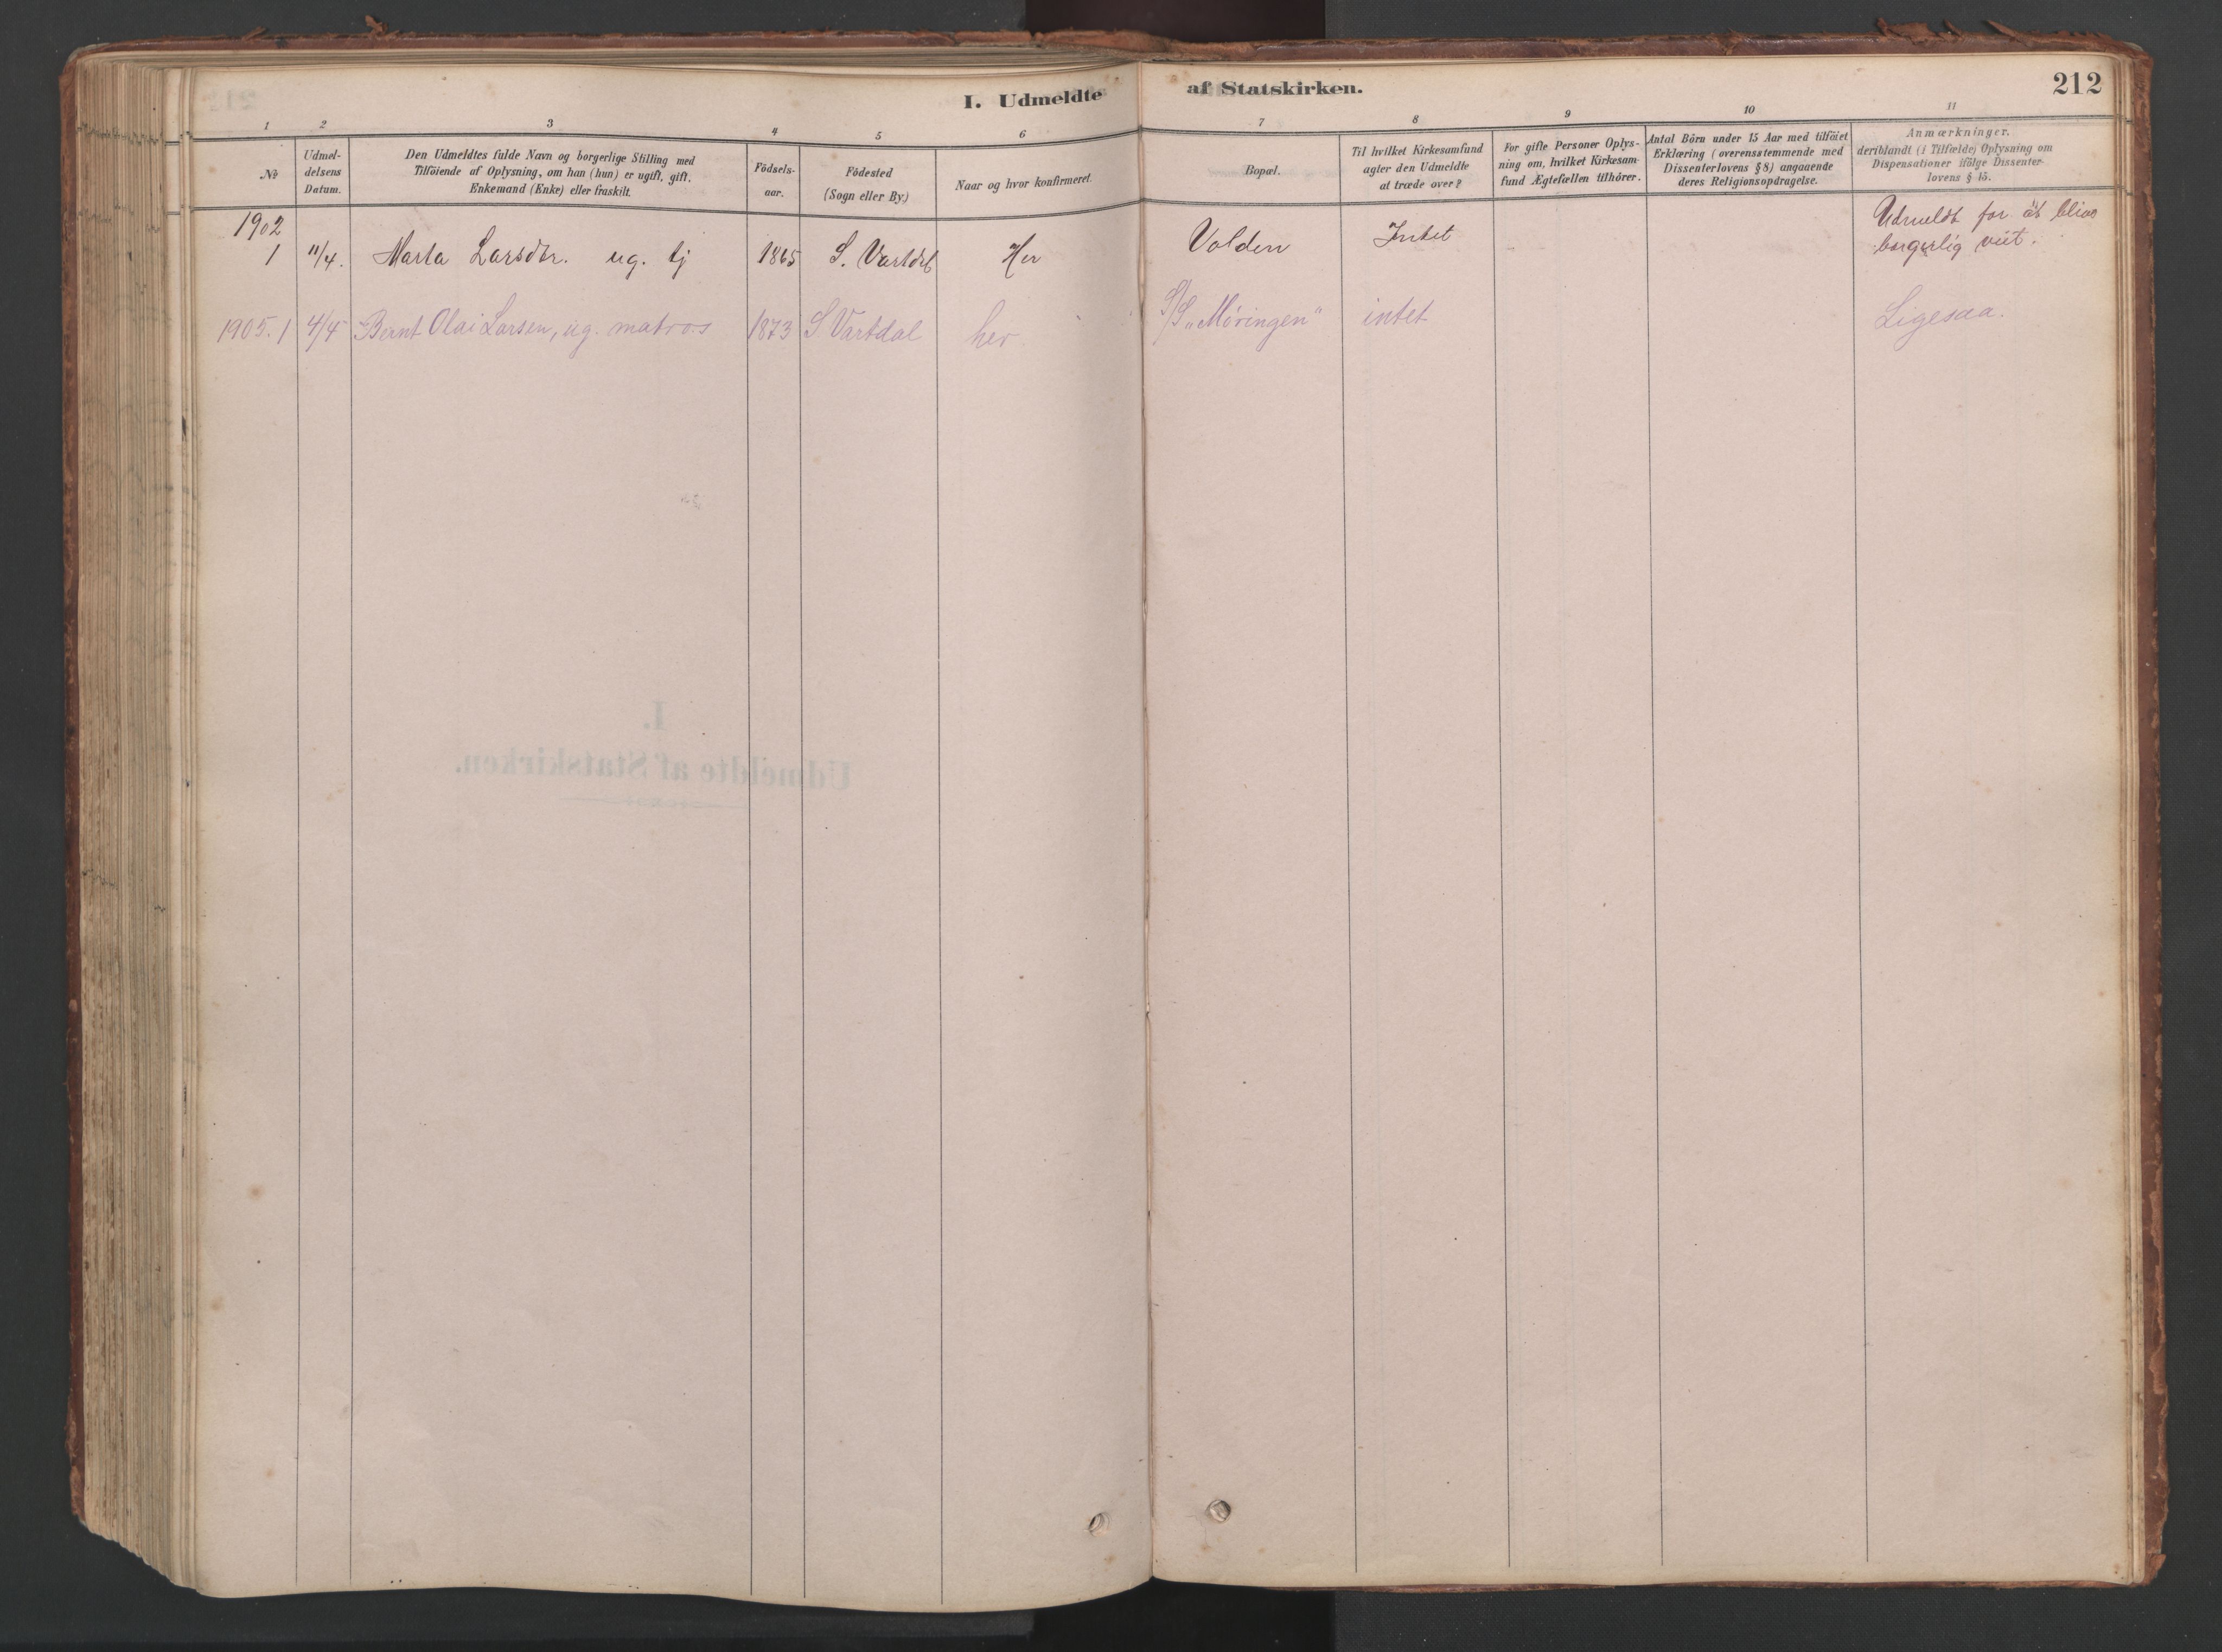 I. Udmeldte af Statskirken. 212
1 2 3 4 5 6 7 8 9 10 11
No
Udmel-
delsens
Datum.
Den Udmeldtes fulde Navn og borgerlige Stilling med
Tilföiende af Oplysning, om han (hun) er ugift, gift,
Enkemand (Enke) eller fraskilt.
Födsels-
aar.
Födested
(Sogn eller By)
Naar og hvor konfirmeret.
Bopæl.
Til hvilket Kirkesamfund
agter den Udmeldte
at træde over?
For gifte Personer Oplys-
ning om, hvilket Kirkesam-
fund Ægtefællen tilhörer.
Antal Börn under 15 Aar med tilföiet
Erklæring (overensstemmende med
Dissenterlovens § 8) angaaende
deres Religionsopdragelse.
Anmærkninger.
deriblandt (i Tilfælde) Oplysning om
Dispensationer ifölge Dissenter-
lovens § 15.
1902
1 11/4. Marta Larsdtr. ug. tj 1865 S. Vartdal Her Volden Intet Udmeldt for at blive
borgerlig viet.
1905. 1 4/4 Bernt Olai Larsen, ug. matros 1873 S. Vartdal her S/S „Möringen" intet Ligesaa.
I.
Udmeldte af Statskirken.